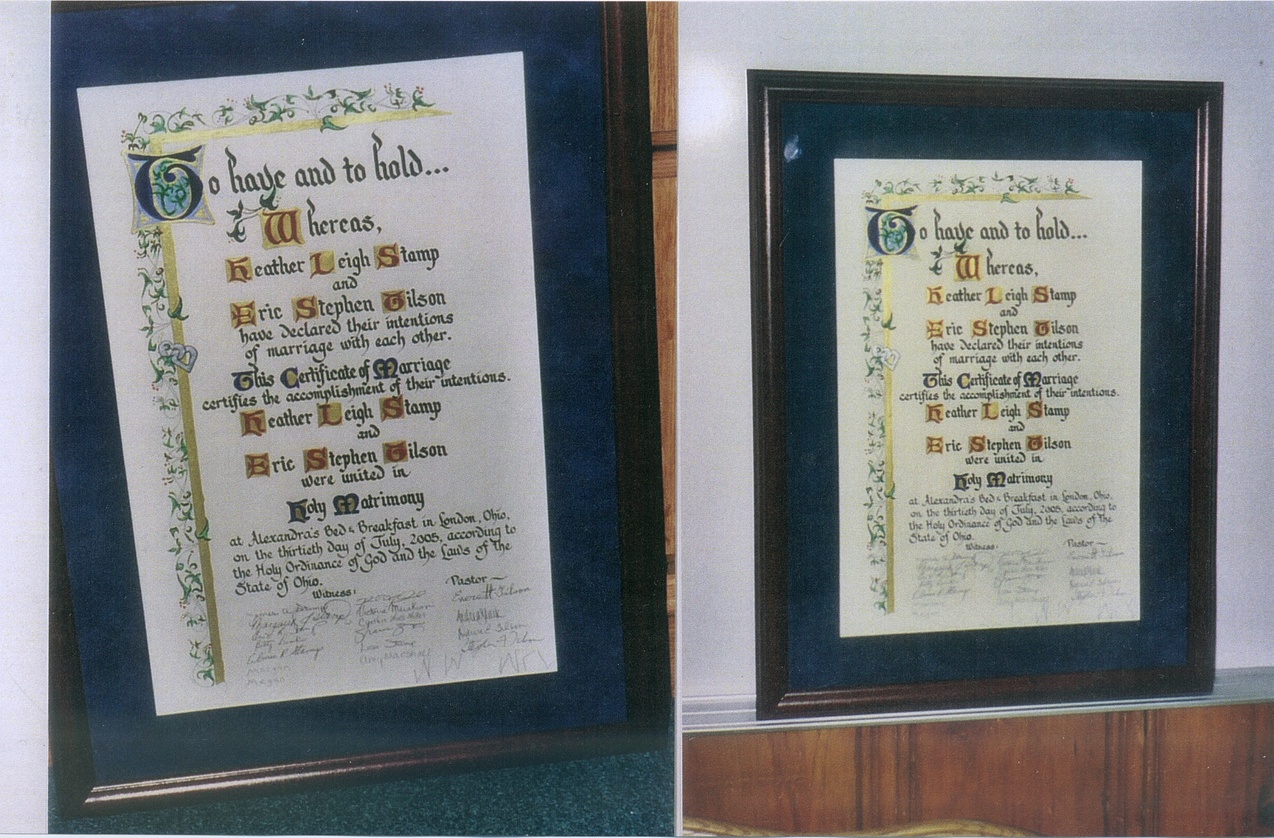 To have and to hold...
Whereas,
Heather Leigh Stamp
and
Eric Stephen Tilson
have declared their intentions
of marriage with each other.
This Certificate of Marriage
certifies the accomplishment of their intentions.
Heather Leigh Stamp
and
Eric Stephen Tilson
were united in
Holy Matrimony
at Alexandra's Bed & Breakfast in London, Ohio,
on the thirtieth day of July, 2005, according to
the Holy Ordinance of God and the Laws of the
State of Ohio.
Witness: Pastor~
Everett Tilson
Megan
Amy Marshall
To have and to hold...
Whereas,
Heather Leigh Stamp
and
Eric Stephen Tilson
have declared their intentions
of marriage with each other.
This Certificate of Marriage
certifies the accomplishment of their intentions.
Heather Leigh Stamp
and
Eric Stephen Tilson
were united in
Holy Matrimony
at Alexandra's Bed & Breakfast in London, Ohio,
on the thirtieth day of July, 2005, according to
the Holy Ordinance of God and the Laws of the
State of Ohio.
Witness: Pastor~
Everett Tilson